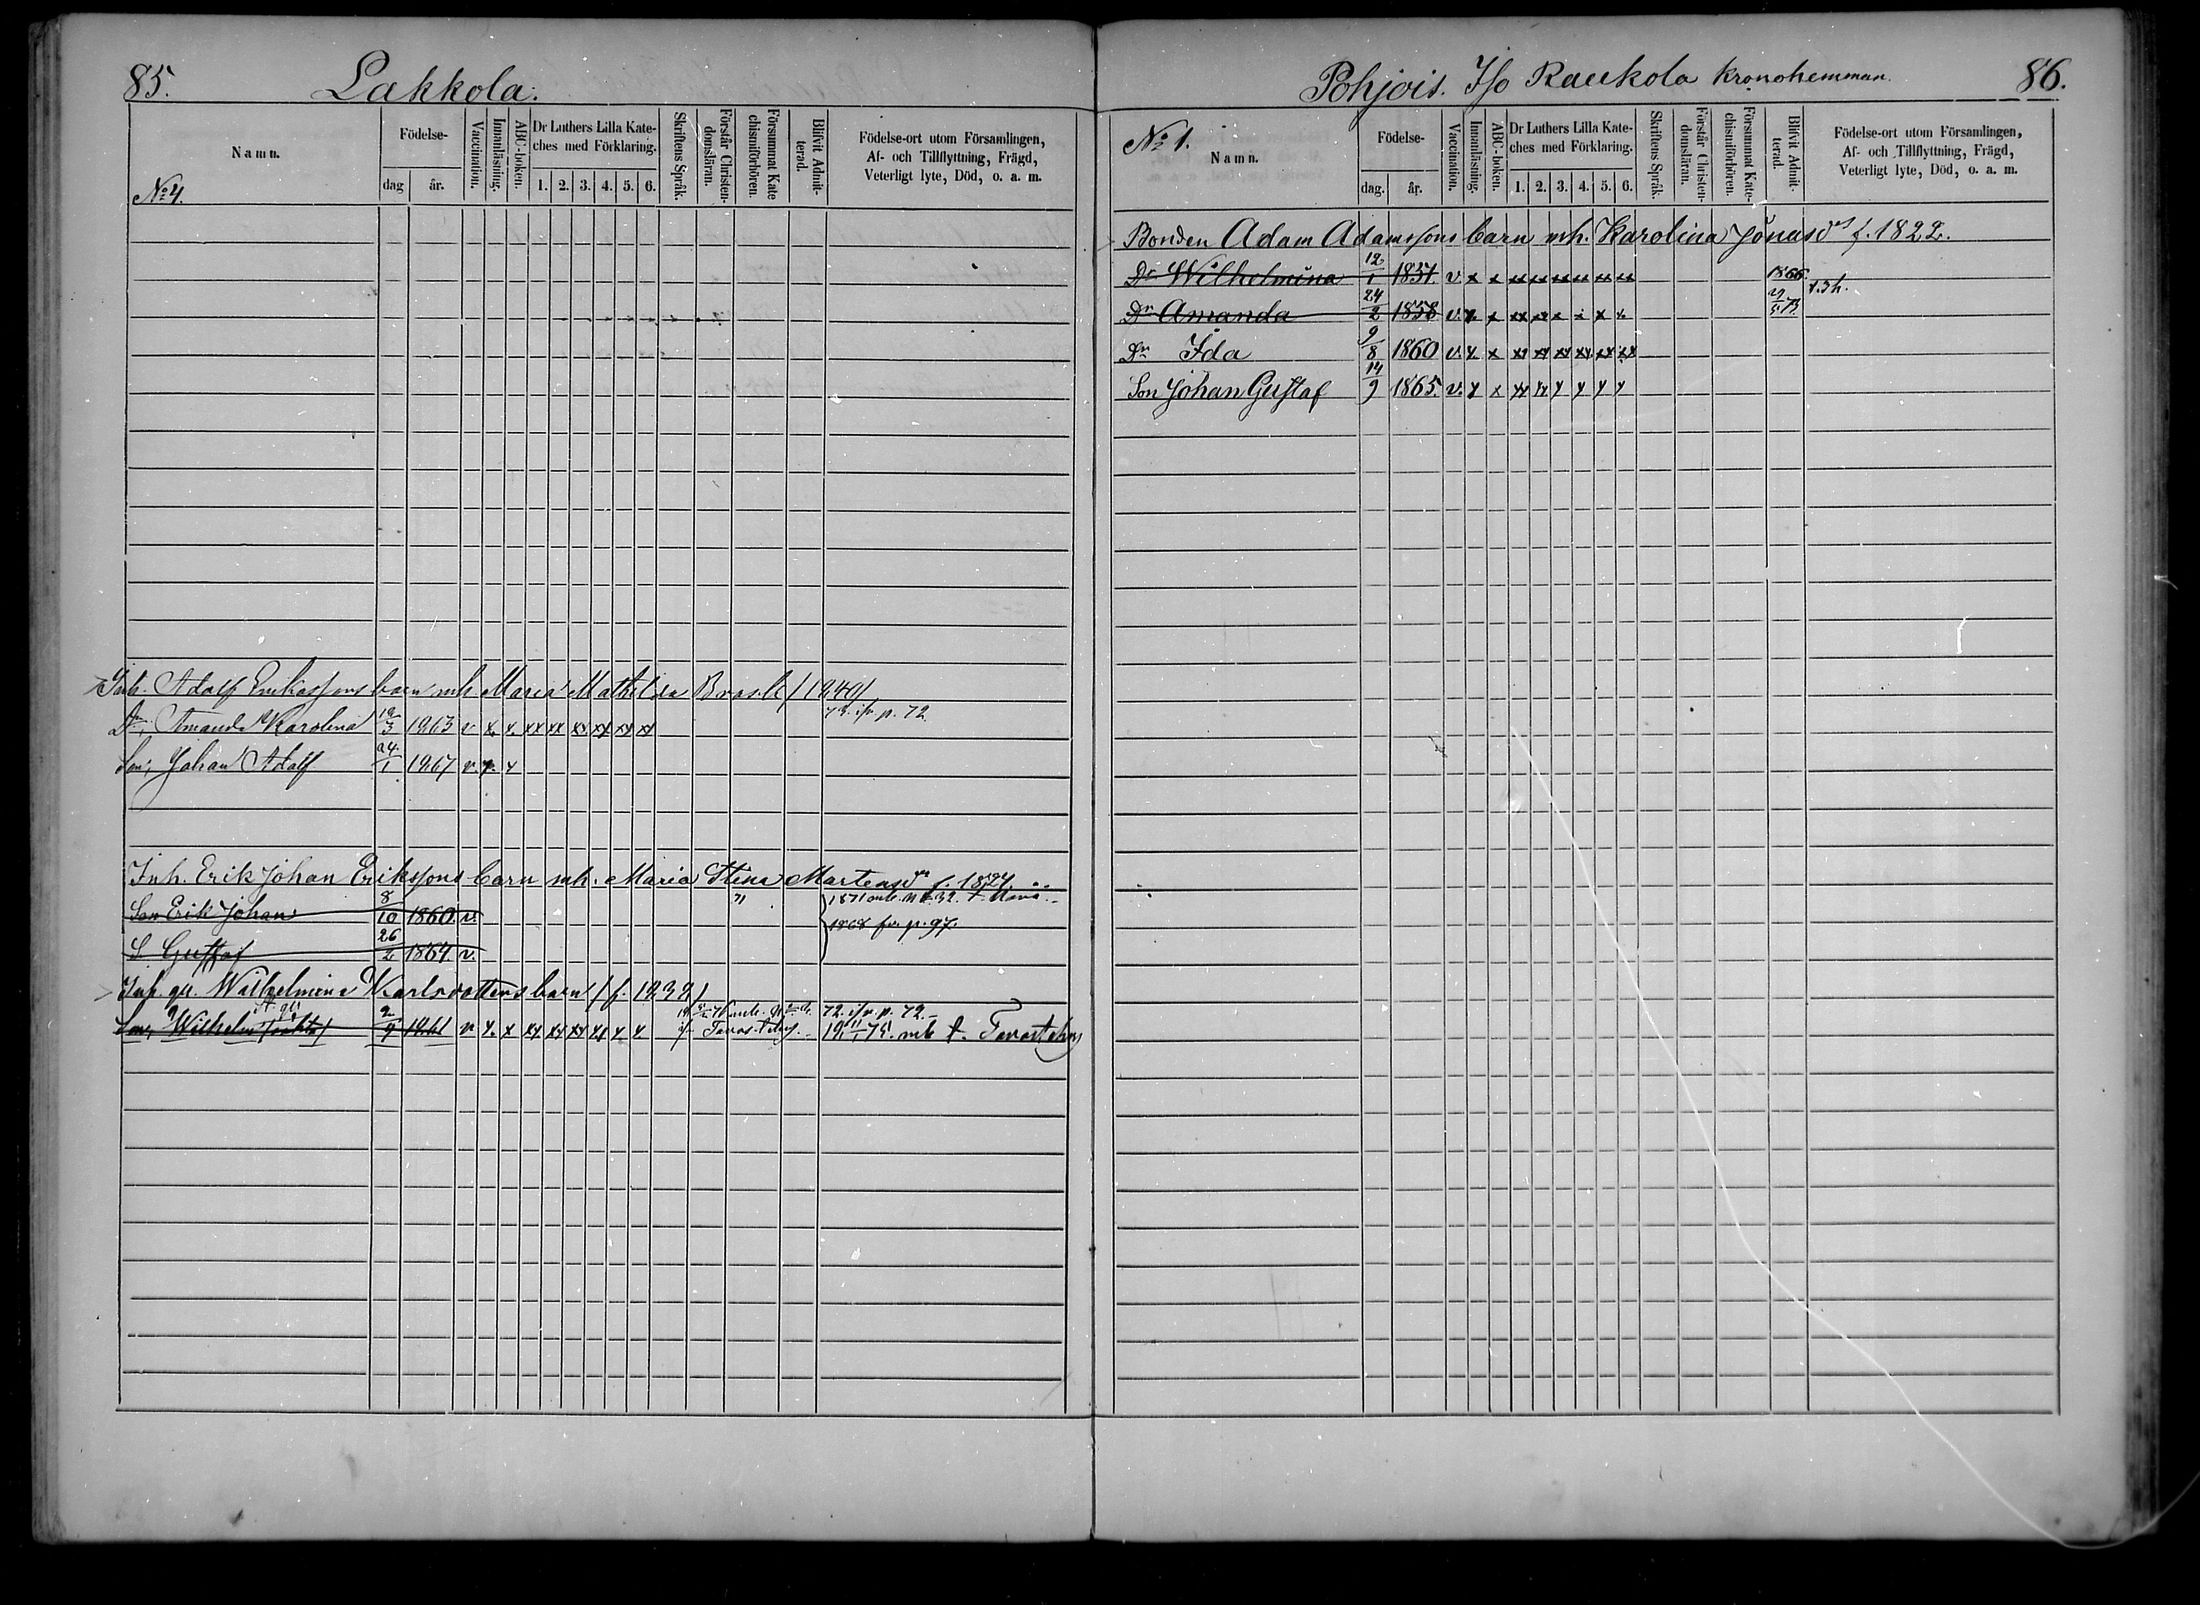 85.
Lakkola.
Namn.
Födelse-
dag
år.
Vaccination.
Innanläsning.
ABC-boken.
Dr Luthers Lilla Kate-
ches med Förklaring.
1. 2. 3. 4. 5. 6.
Skriftens Språk.
Förstår Christen-
domsläran.
Försummat Kate
chismiförhören.
Blifvit Admit-
terad.
Födelse-ort utom Församlingen,
Af- och Tillflyttning, Frägd,
Veterligt lyte, Död, o. a. m.
No 4.
Inh. Adolf Erikssons barn mh Maria Mathilda
73. ifr. p. 72
Dr, Amanda Karolina 19/3 1863 v x. x. xx xx xx xx xx xx
Son, Johan Adolf 24/1 1867 v. x. x
Inh. Erik Johan Erikssons barn mh. Maria Stina Martensdr f. 1824
Son Erik Johan 8/10 1860 v.
1868 fr. p. 97.
S. Gustaf 26/2 1864 v.
Inh. qu. Wilhelmina Karlsdotters barn / f. 1832 /
72. ifr. p. 72.
Son, Wilhelm 2/9 1861 v x. x xx xx xx xx x. x. Tavastehus
86.
Pohjois. Iso Raukola Kronohemman.
No 1.
Namn.
Födelse-
dag.
år.
Vaccination.
Innanläsning.
ABC-boken.
Dr Luthers Lilla Kate-
ches med Förklaring.
1. 2. 3. 4. 5. 6.
Skriftens Språk.
Förstår Christen-
domsläran.
Försummat Kate-
chismiförhören.
Blifvit Admit-
terad.
Födelse-ort utom Församlingen,
Af- och Tillflyttning, Frägd,
Veterligt lyte, Död, o. a. m.
Bonden Adam Adamssons barn mh. Karolina Jönasdr f. 1822.
Dr Wilhelmina 12/1 1851. v. x x xx xx xx xx xx xx 1866.
Dr Amanda 24/2 1858 v. x. x xx xx x x x x.
Dr Ida 9/8 1860 v. x. x xx xx xx xx. xx xx
Son Johan Gustaf 14/9 1865. v. x x xx xx x x x x